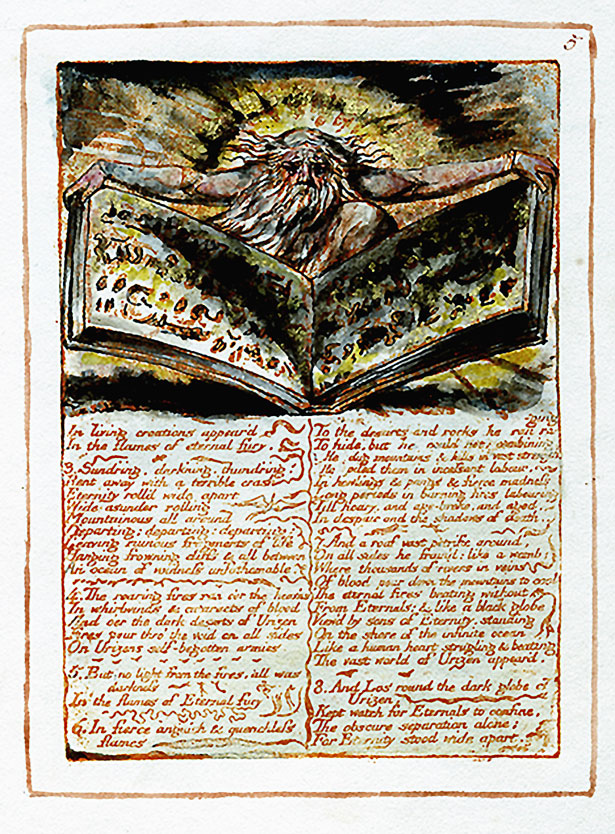 5
In living creations appear'd
In the flames of eternal fury.
3. Sundring, darkning, thundring!
Rent away with a terrible crash
Eternity roll'd wide apart
Wide asunder rolling
Mountainous all around
Departing; departing; departing:
Leaving ruinous fragments of life
Hanging frowning cliffs & all between
An ocean of voidness unfathomable
4. The roaring fires ran o'er the heav'ns
In whirlwinds & cataracts of blood
And o'er the dark desarts of Urizen
Fires pour thro' the void on all sides
On Urizens self-begotten armies.
5. But no light from the fires, all was
darkness
In the flames of Eternal fury
6. In fierce anguish & quenchless
flames
ging
To the desarts and rocks he ran ra-
To hide, but he could not; combining
He dug mountains & hills in vast strength
He piled them in incessant labour,
In howlings & pangs & fierce madness
Long periods in burning fires labouring
Till hoary, and age-broke, and aged,
In despair and the shadows of death.
7. And a roof vast petrific around
On all sides he fram'd: like a womb;
Where thousands of rivers in veins
Of blood pour down the mountains to cool
The eternal fires beating without
From Eternals; & like a black globe
View'd by sons of Eternity, standing
On the shore of the infinite ocean
Like a human heart strugling & beating
The vast world of Urizen appear'd.
8. And Los round the dark globe of
Urizen,
Kept watch for Eternals to confine,
The obscure separation alone;
For Eternity stood wide apart,